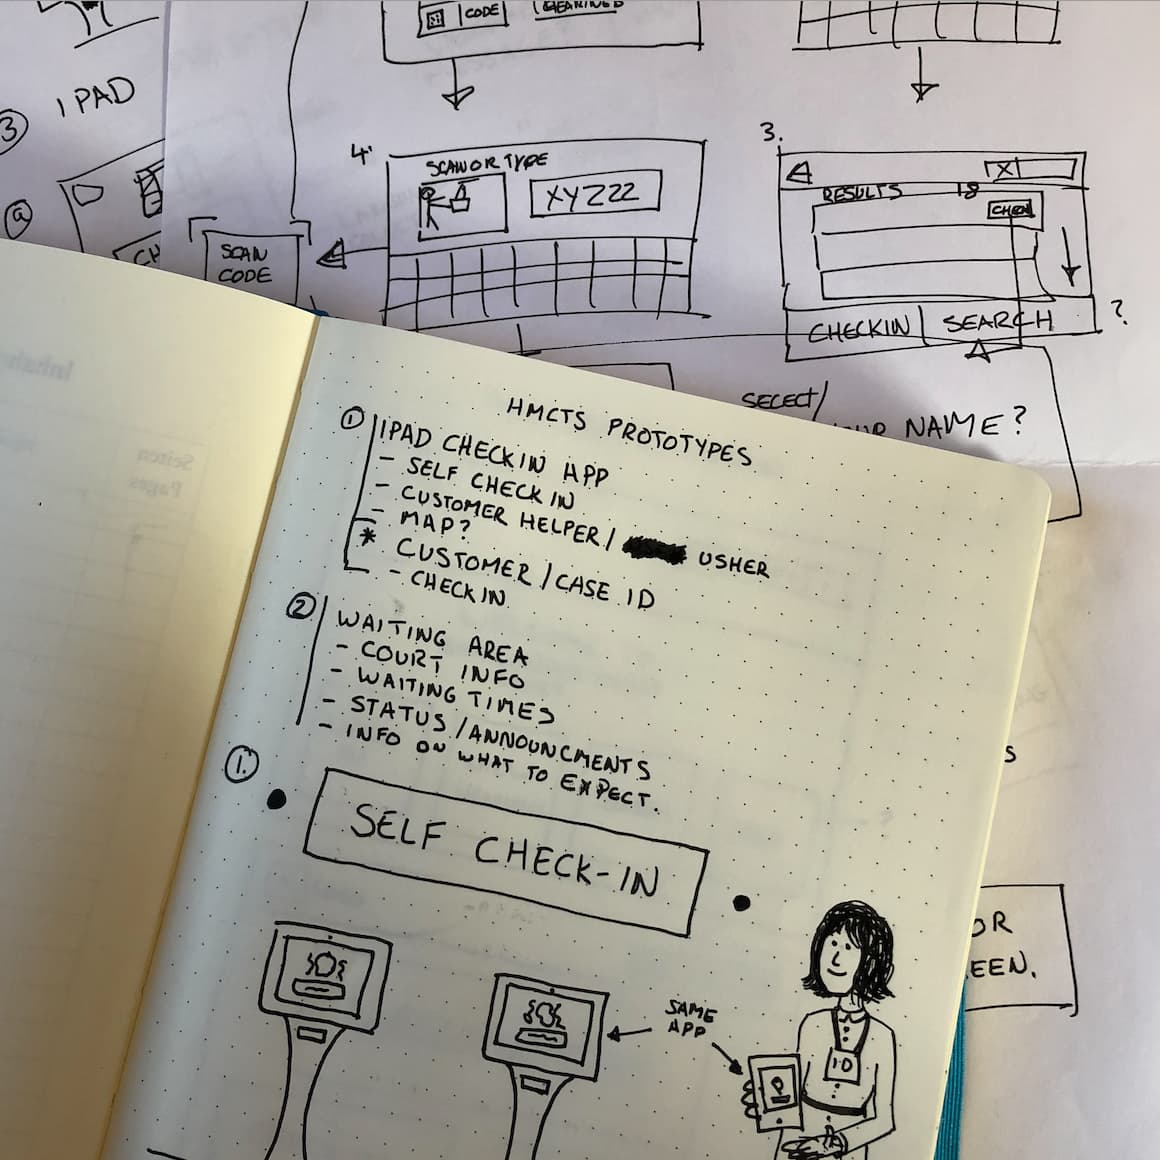 CODE
3
IPAD
a
4.
SCAN OR TYPE
XYZZZ
SCAN
CODE
3.
X
RESULTS
18
CHECKIN
SEARCH
?
SELECT/
NAME?
HMCTS PROTOTYPES
1 IPAD CHECKIN APP
- SELF CHECK IN
- CUSTOMER HELPER/ USHER
- MAP?
* CUSTOMER/CASE ID
- CHECKIN
2 WAITING AREA
- COURT INFO
- WAITING TIMES
- STATUS/ANNOUNCMENTS
- INFO ON WHAT TO EXPECT.
1.
SELF CHECK-IN
SAME
APP
ID
OR
EEN.
S